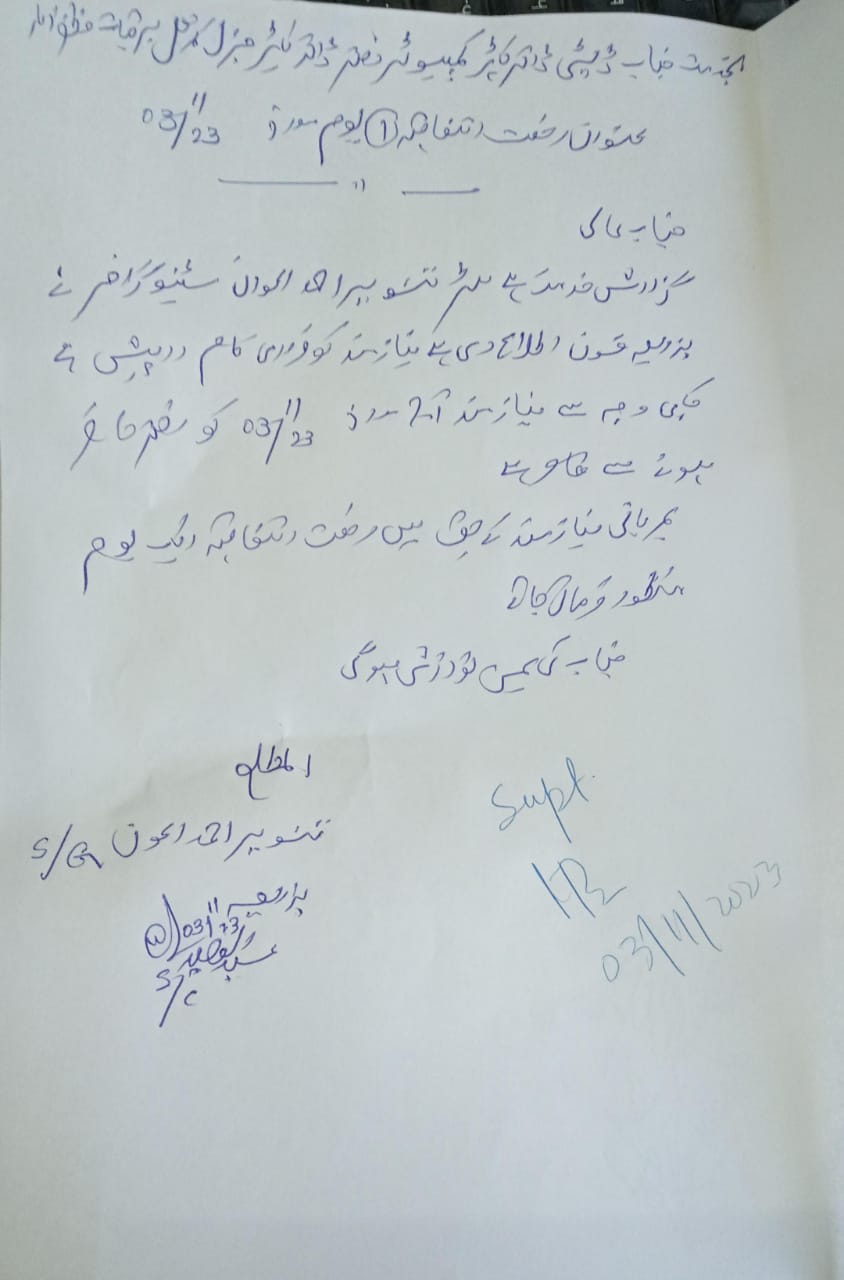 بخدمت جناب ڈپٹی ڈائریکٹر کمپیوٹر دفتر ڈائریکٹر جنرل کمرشل برقیات مظفرآباد
عنوان رخصت اتفاقیہ ① یوم مورخہ 03/11/23
جناب عالی
گزارش خدمت ہے مسٹر تنویر احمد اعوان سٹینوگرافر نے
بذریعہ فون اطلاع دی ہے نیازمند کو ضروری کام درپیش ہے
جس کی وجہ سے نیازمند آج مورخہ 03/11/23 کو دفتر حاضر
ہونے سے قاصر ہے
بمہربانی نیازمند کے حق میں رخصت اتفاقیہ ایک یوم
منظور فرمائی جائے
جناب کی عین نوازش ہوگی
المطلع
تنویر احمد اعوان S/G
بذریعہ 03/11/23
S/C
Supt.
03/11/2023